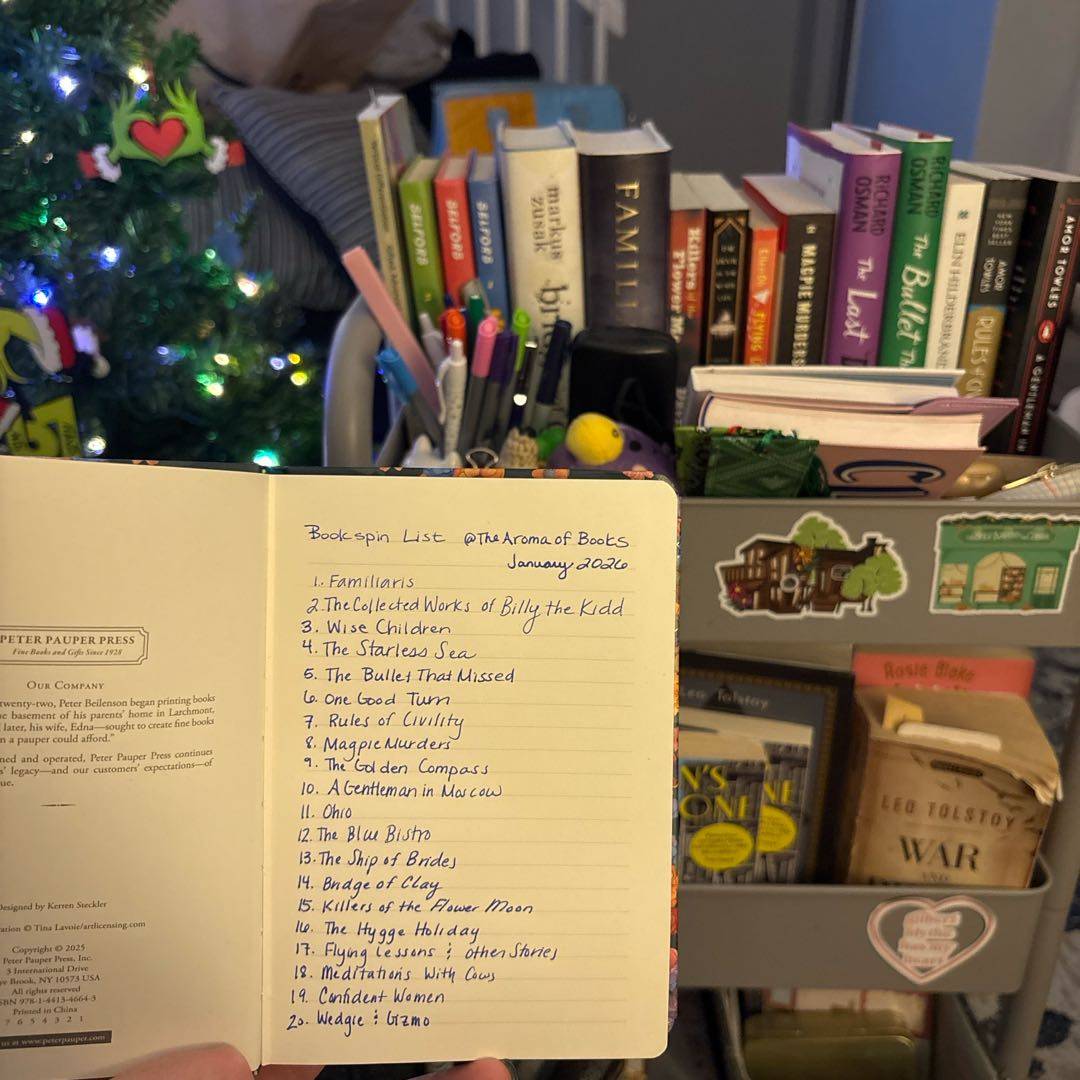 SELFORB
SELFORB
SELFORB
markus
zusak
FAMILI
Killers of the
Flower M
FLYING
MAGPIE MURDERS
RICHARD
OSMAN
The Last
RICHARD
OSMAN
The Bullet Th
ELIN HILDERBRAND
NEW
YORK
TIMES
BEST
SELLER
AMOR
TOWLES
RULES of
AMOR TOWLES
A GENTLEMAN IN
Bookspin List @TheAromaofBooks
January 2026
1. Familiaris
2. The Collected Works of Billy the Kidd
3. Wise Children
4. The Starless Sea
5. The Bullet That Missed
6. One Good Turn
7. Rules of Civility
8. Magpie Murders
9. The Golden Compass
10. A Gentleman in Moscow
11. Ohio
12. The Blue Bistro
13. The Ship of Brides
14. Bridge of Clay
15. Killers of the Flower Moon
16. The Hygge Holiday
17. Flying Lessons & other Stories
18. Meditations With Cows
19. Confident Women
20. Wedgie & Gizmo
PETER PAUPER PRESS
Fine Books and Gifts Since 1928
OUR COMPANY
twenty-two, Peter Beilenson began printing books
e basement of his parents' home in Larchmont,
later, his wife, Edna—sought to create fine books
n a pauper could afford."
ned and operated, Peter Pauper Press continues
s' legacy—and our customers' expectations—of
ue.
Designed by Kerren Steckler
ation © Tina Lavoie/artlicensing.com
Copyright © 2025
Peter Pauper Press, Inc.
3 International Drive
ye Brook, NY 10573 USA
All rights reserved
SBN 978-1-4413-4664-3
Printed in China
7 6 5 4 3 2 1
us at www.peterpauper.com
Leo Tolstoy
N'S
ONE
NE
Rosie Blake
LEO TOLSTOY
WAR
AND